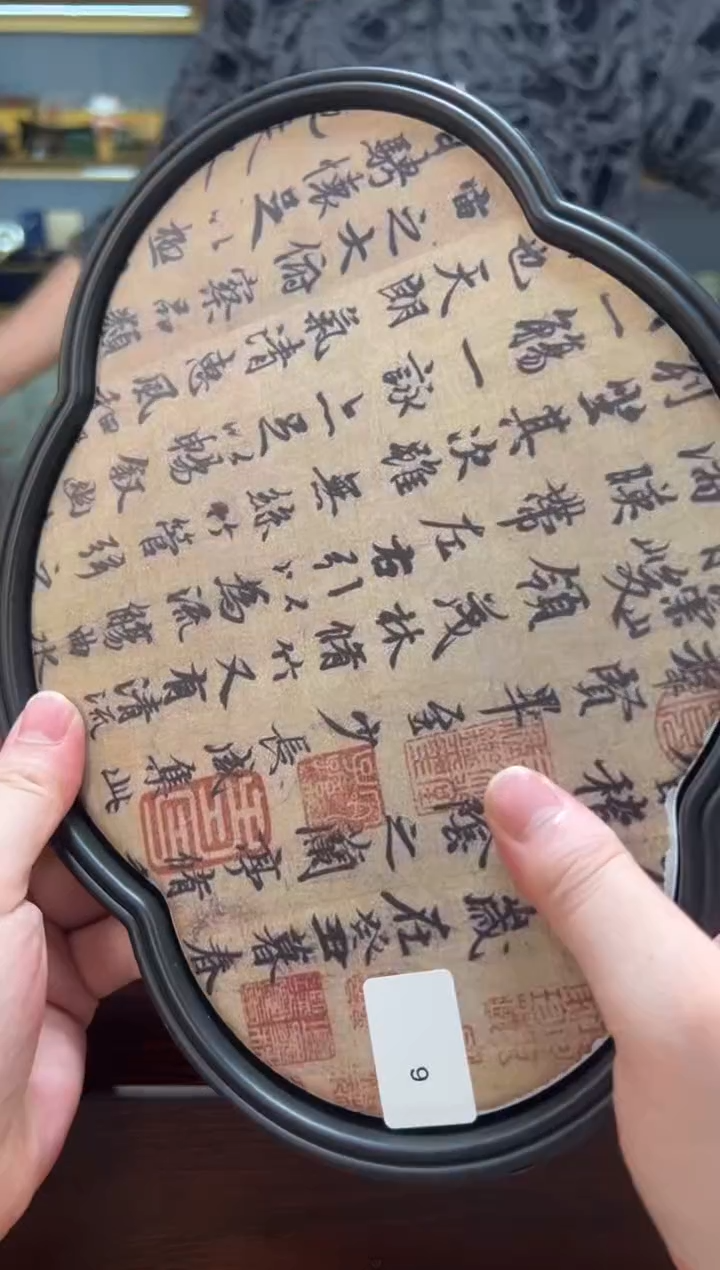 歲在癸丑暮春
稽陰之蘭亭脩
賢畢至少長咸集此
崇山峻領茂林脩竹又有清流
湍暎帶左右引以為流觴曲水
列坐其次雖無絲竹管弦之
一觴一詠亦足以暢敘幽
也天朗氣清惠風和
宙之大俯察品類
騁懷足以極
9